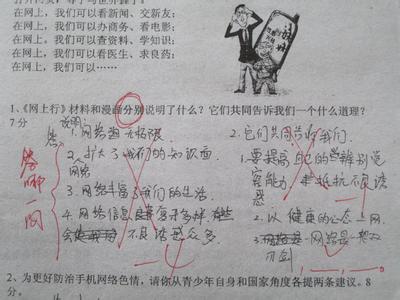 在网上，我们可以看新闻、交新友；
在网上，我们可以办商务、看电影；
在网上，我们可以查资料、学知识；
在网上，我们可以看医生、求良药；
1、《网上行》材料和漫画分别说明了什么？它们共同告诉我们一个什么道理？
7 分
说明：
1. 网络无极限
2. 扩大了我们的知识面
网络
3. 网络丰富了我们的生活
4. 网络信息良莠多样
会 不良诱惑众多
2. 它们共同告诉我们：
1. 要提高自己的辨别觉
察能力 抵抗不良诱
惑
2. 以健康的心态上网
3. 网络是一把双
刃剑
答哪一问
2、为更好防治手机网络色情，请你从青少年自身和国家角度各提两条建议。8
分。